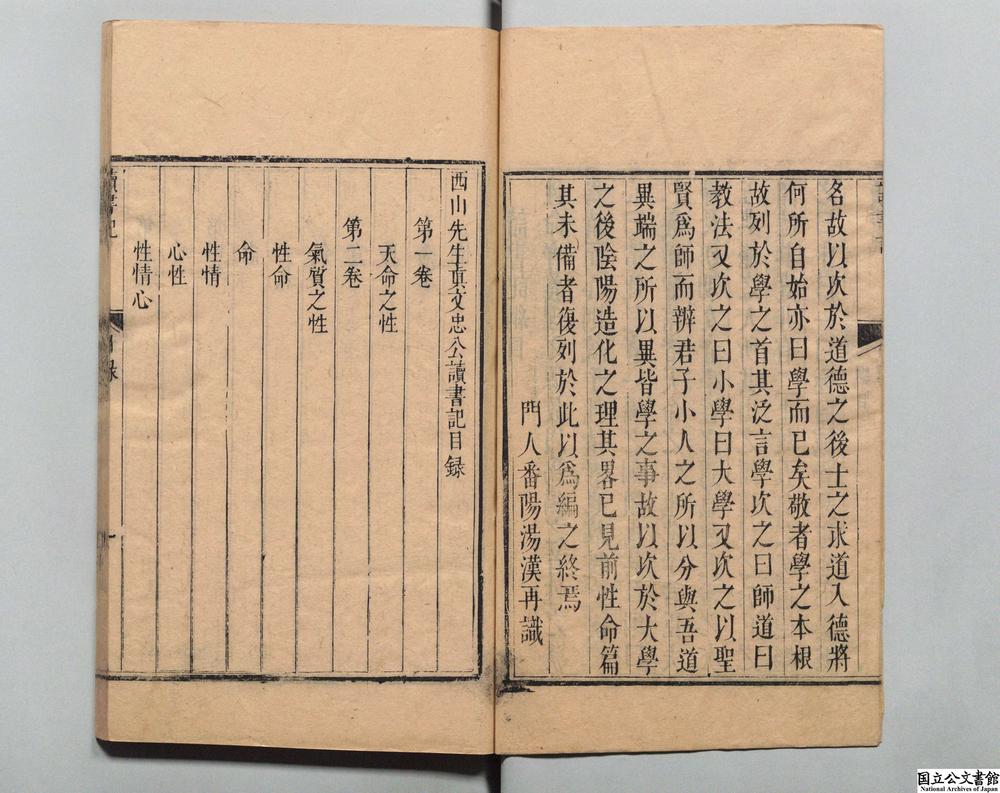 名故以次於道德之後士之求道入德將
何所自始亦曰學而已矣敬者學之本根
故列於學之首其泛言學次之曰師道曰
教法又次之曰小學曰大學又次之以聖
賢爲師而辨君子小人之所以分與吾道
異端之所以異皆學之事故以次於大學
之後陰陽造化之理其畧已見前性命篇
其未備者復列於此以爲編之終焉
門人番陽湯漢再識
西山先生真文忠公讀書記目録
第一卷
天命之性
第二卷
氣質之性
性命
命
性情
心性
性情心
讀書記
目録
一
国立公文書館
National Archives of Japan